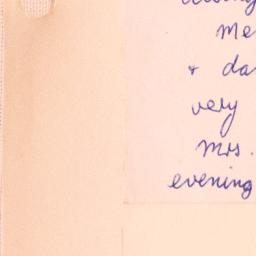 me
& da
very
Mrs.
evening